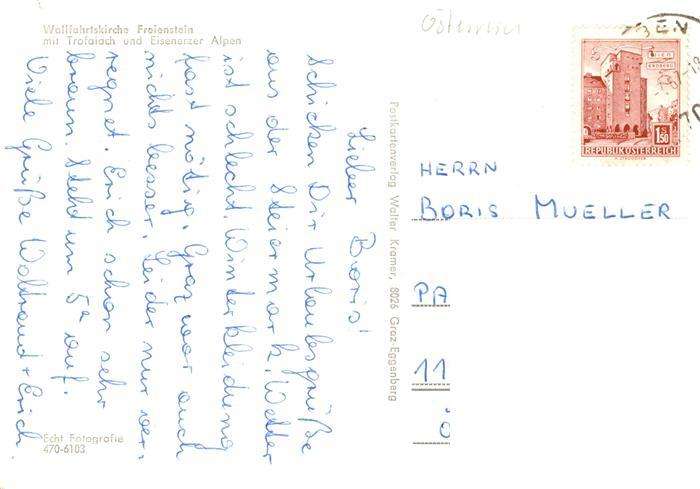 Wallfahrtskirche Freienstein
mit Trofaiach und Eisenerzer Alpen
Lieber Boris!
Schicken Dir Urlaubsgrüße
aus der Steiermark. Wetter
ist schlecht. Winterkleidung
fast nötig. Graz war auch
nichts besser. Leider nur ver-
regnet. Erich schon sehr
braun. Steht um 5ᵃ auf.
Viele Grüße Waltraud + Erich
Echt Fotografie
470-6103
Postkartenverlag Walter Kramer, 8026 Graz-Eggenberg
Österreich
WIEN
ERDBERG
1.50
S
REPUBLIK ÖSTERREICH
BEN
HERRN
BORIS MUELLER
PA
11
Ö